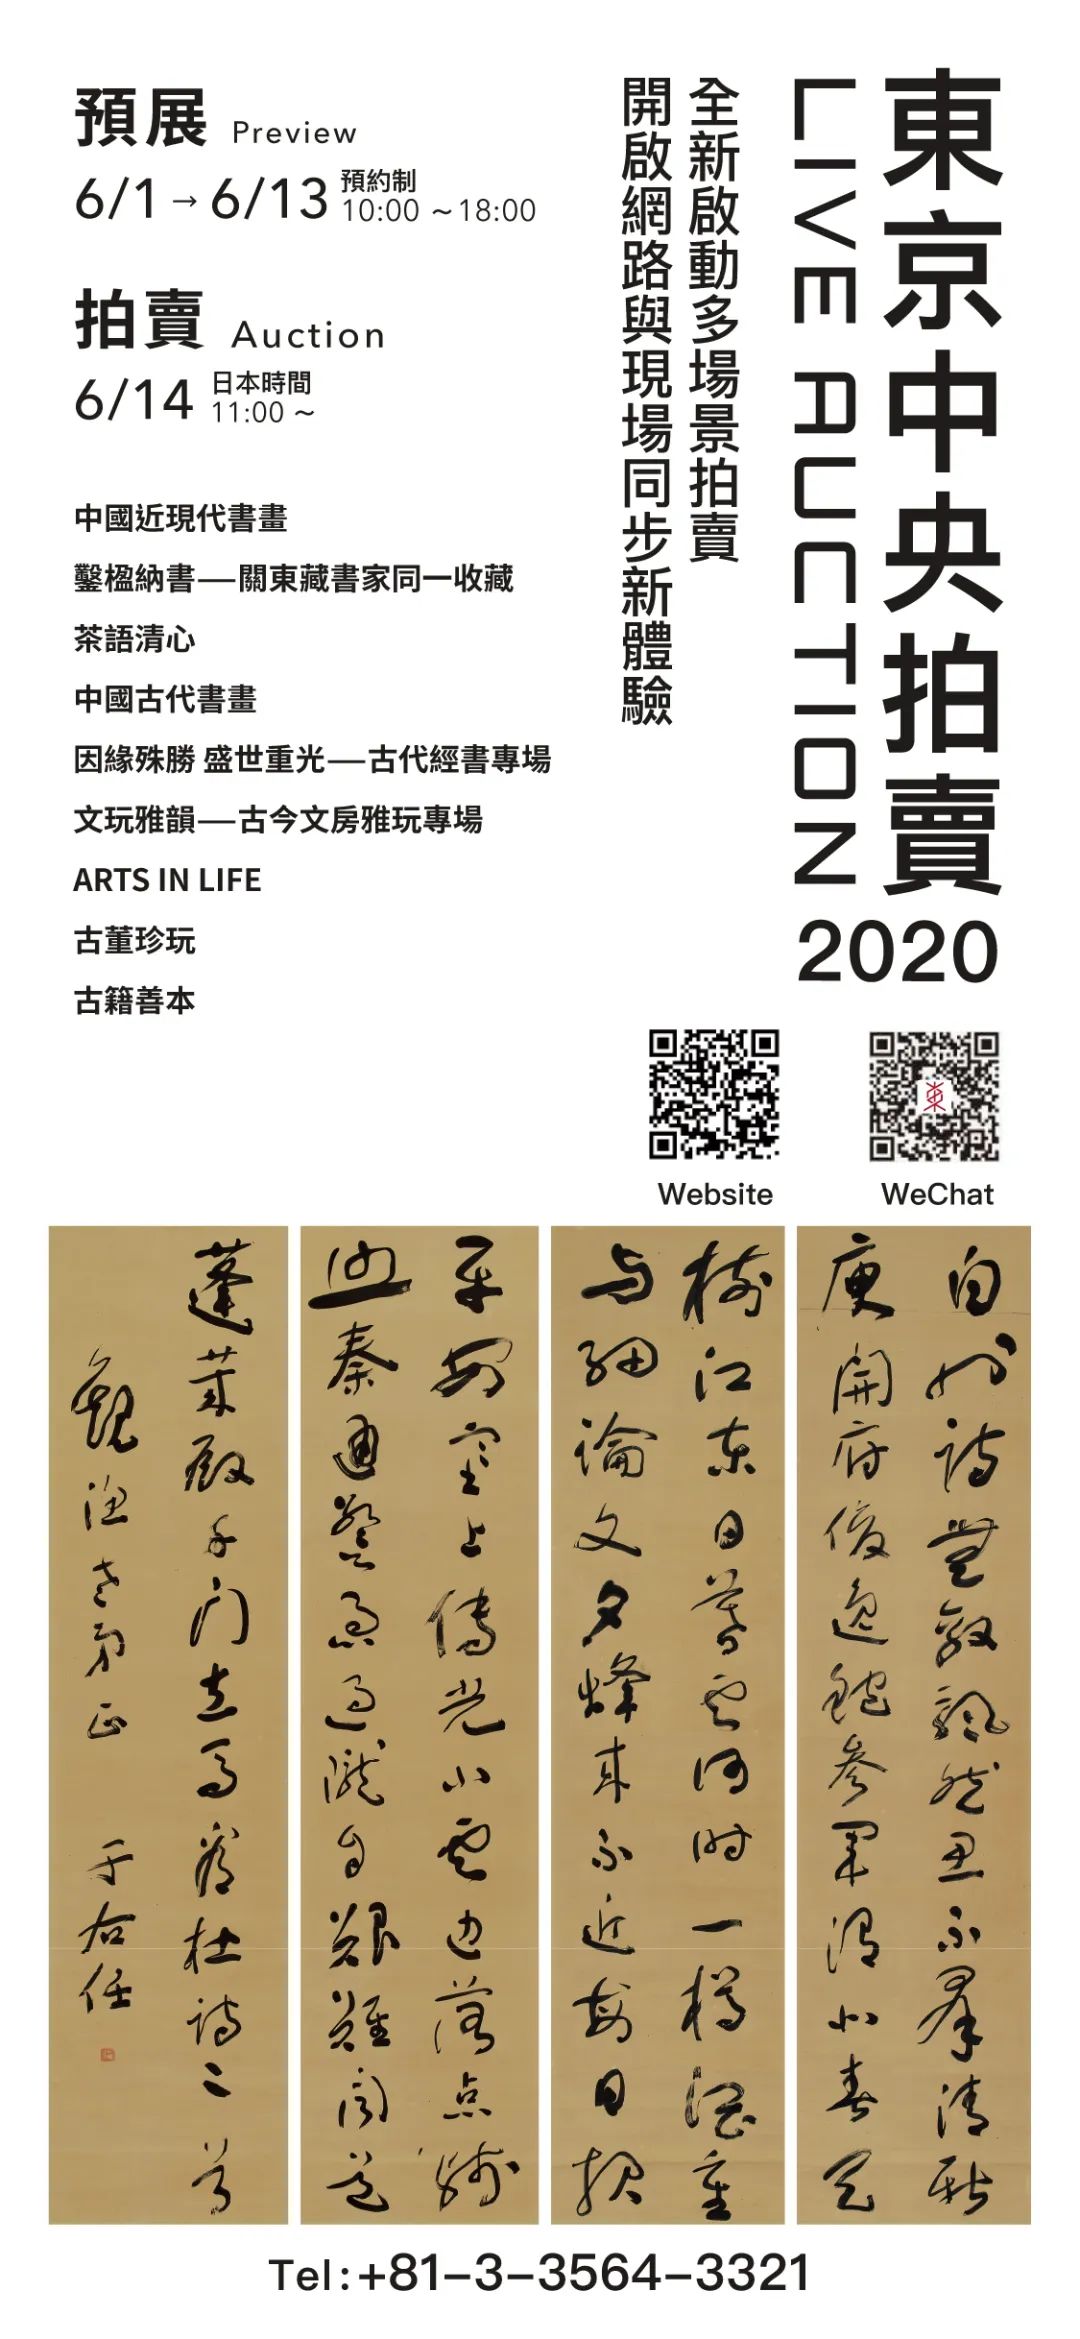 東京中央拍賣
LIVE AUCTION
2020
全新啟動多場景拍賣
開啟網路與現場同步新體驗
預展 Preview
6/1→6/13 預約制 10:00 ~18:00
拍賣 Auction
6/14 日本時間 11:00 ~
中國近現代書畫
鑿楹納書—關東藏書家同一收藏
茶語清心
中國古代書畫
因緣殊勝 盛世重光—古代經書專場
文玩雅韻—古今文房雅玩專場
ARTS IN LIFE
古董珍玩
古籍善本
Website
WeChat
白也詩無敵飄然思不群清新
庾開府俊逸鮑參軍渭北春天
樹江東日暮雲何時一樽酒重
与細論文夕烽來不近每日報
平安塞上傳光小雲邊落點殘
照秦通警急過隴自艱難聞道
蓬萊殿千門立馬看杜詩二首
老弟正 于右任
Tel:+81-3-3564-3321